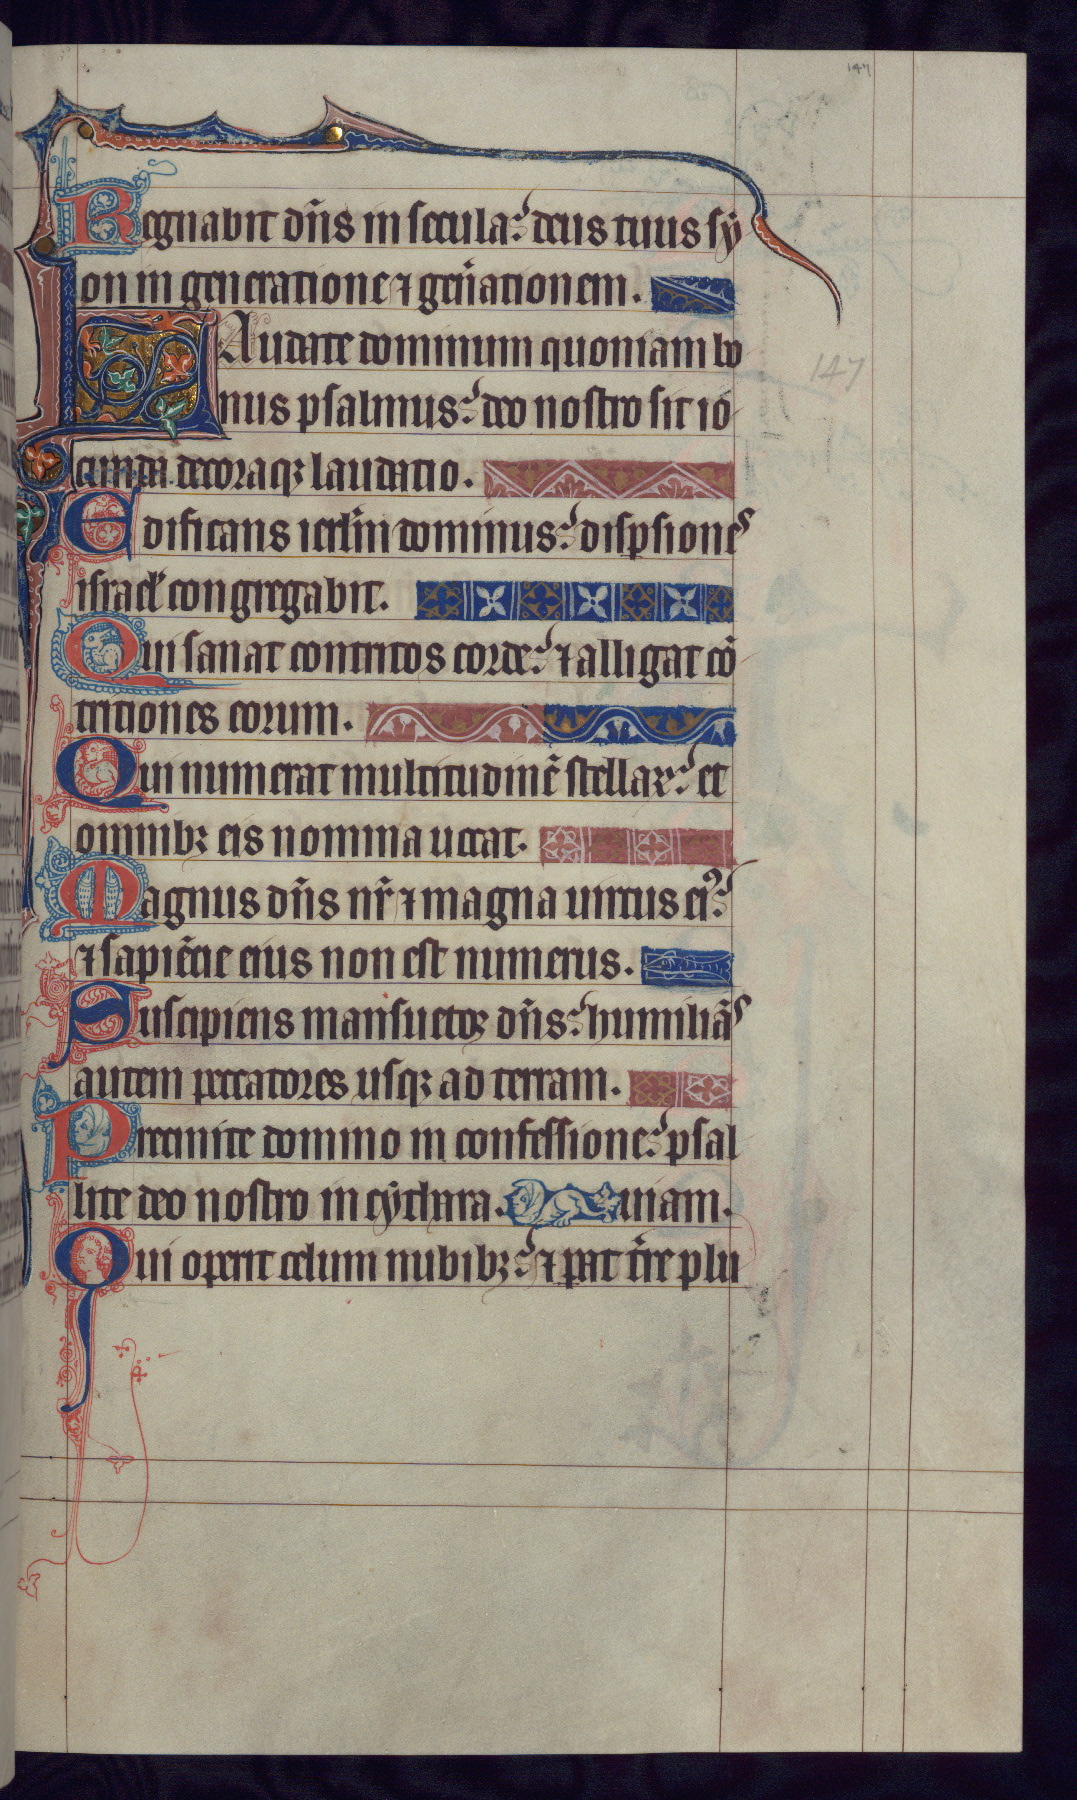 147
Regnabit dn̄s in secula: deus tuus sy
on in generatione ⁊ gen̄ationem.
Laudate dominum quoniam bo
147
nus psalmus: deo nostro sit io
cunda decoraqꝫ laudatio.
Edificans ierlm̄ dominus: disꝑsiones
israel̓ congregabit.
Qui sanat contritos corde: ⁊ alligat cō
tritiones eorum.
Qui numerat multitudinē stellaꝝ: et
omnibꝫ eis nomina uocat.
Magnus dn̄s nr̄ ⁊ magna uirtus eiꝰ:
⁊ sapiē̄cie eius non est numerus.
Suscipiens mansuetoꝝ dn̄s: humiliās
autem peccatores usqꝫ ad terram.
Precinite domino in confessione: psal
lite deo nostro in cythara.
uiam.
Qui operit celum nubibꝫ: ⁊ ꝑat tr̄re plu